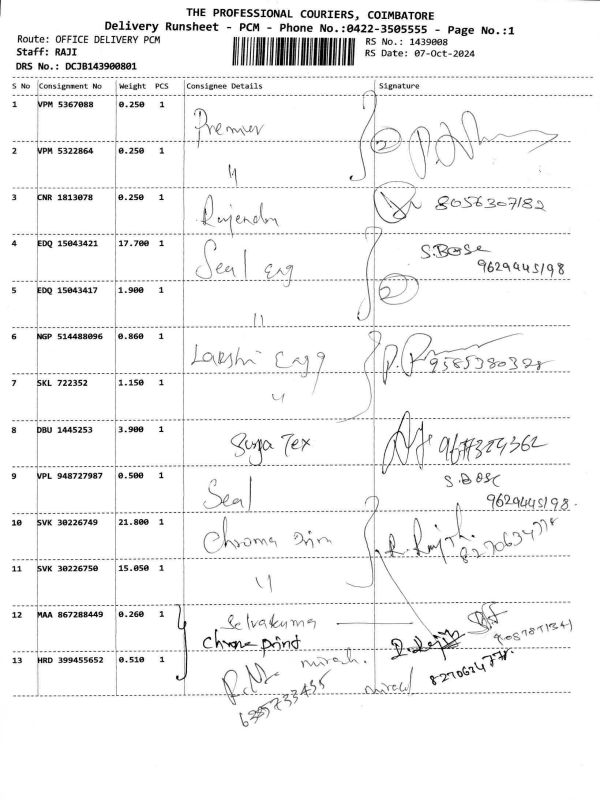 THE PROFESSIONAL COURIERS, COIMBATORE
Delivery Runsheet - PCM - Phone No.:0422-3505555 - Page No.:1
Route: OFFICE DELIVERY PCM
RS No.: 1439008
Staff: RAJI
RS Date: 07-Oct-2024
DRS No.: DCJB143900801
S No Consignment No Weight PCS Consignee Details Signature
1 VPM 5367088 0.250 1
Premier
2
2 VPM 5322864 0.250 1
"
3 CNR 1813078 0.250 1
8056307182
4 EDQ 15043421 17.700 1
Seal Eng
S.BOSE
9629445198
5 EDQ 15043417 1.900 1
2
"
6 NGP 514488096 0.860 1
Lakshi Engg
9585380328
7 SKL 722352 1.150 1
"
8 DBU 1445253 3.900 1
Surya Tex
9 VPL 948727987 0.500 1
S.BOSE
Seal
9629445198.
10 SVK 30226749 21.800 1
Chroma Prin
11 SVK 30226750 15.050 1
"
12 MAA 867288449 0.260 1
Selvakuma
Chrome print
13 HRD 399455652 0.510 1